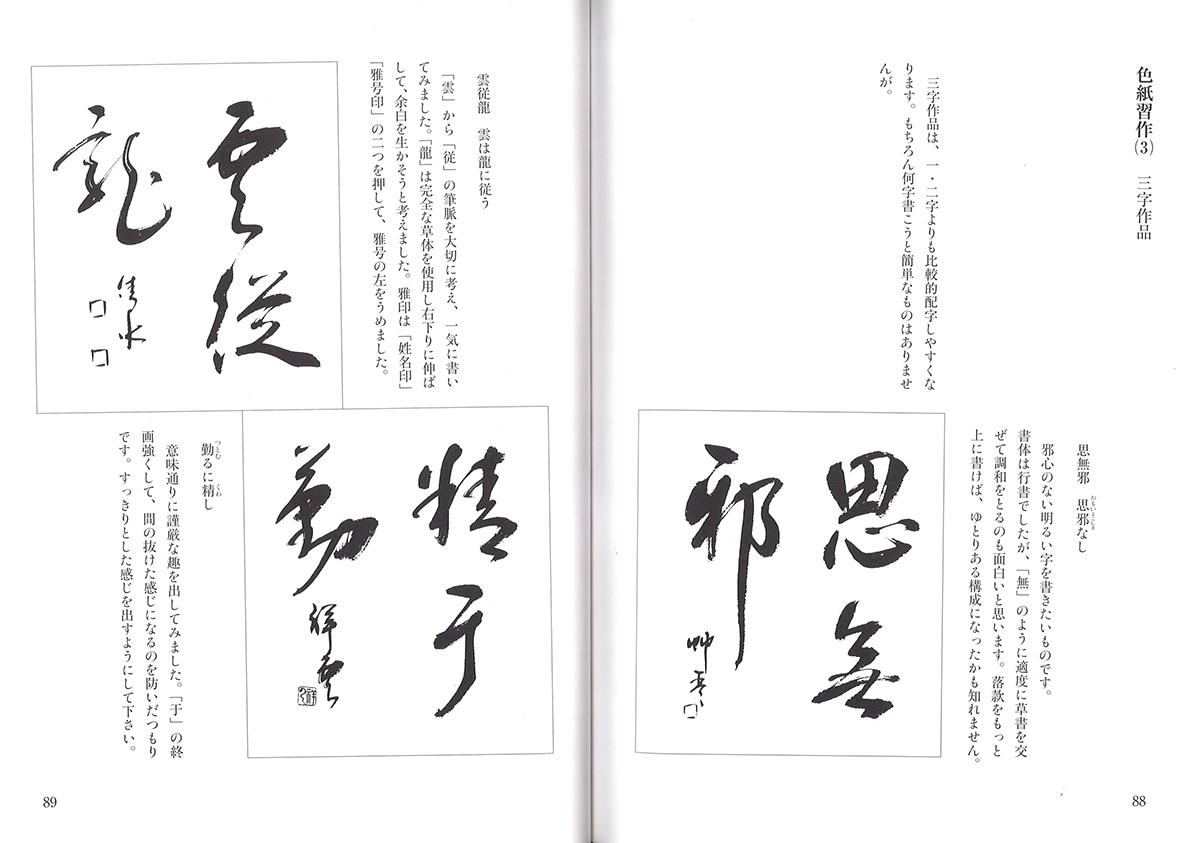 色紙習作(3) 三字作品
三字作品は、一・二字よりも比較的配字しやすくな
ります。もちろん何字書こうと簡単なものはありませ
んが。
思無邪 思邪なし
おもいよこしま
邪心のない明るい字を書きたいものです。
書体は行書でしたが、「無」のように適度に草書を交
ぜて調和をとるのも面白いと思います。落款をもっと
上に書けば、ゆとりある構成になったかも知れません。
思無
邪
88
雲従龍 雲は龍に従う
「雲」から「従」の筆脈を大切に考え、一気に書い
てみました。「龍」は完全な草体を使用し右下りに伸ば
して、余白を生かそうと考えました。雅印は「姓名印」
「雅号印」の二つを押して、雅号の左をうめました。
雲従
龍
精于
勤
祥雲
勤るに精し
つとむ くわ
意味通りに謹厳な趣を出してみました。「于」の終
画強くして、間の抜けた感じになるのを防いだつもり
です。すっきりとした感じを出すようにして下さい。
89